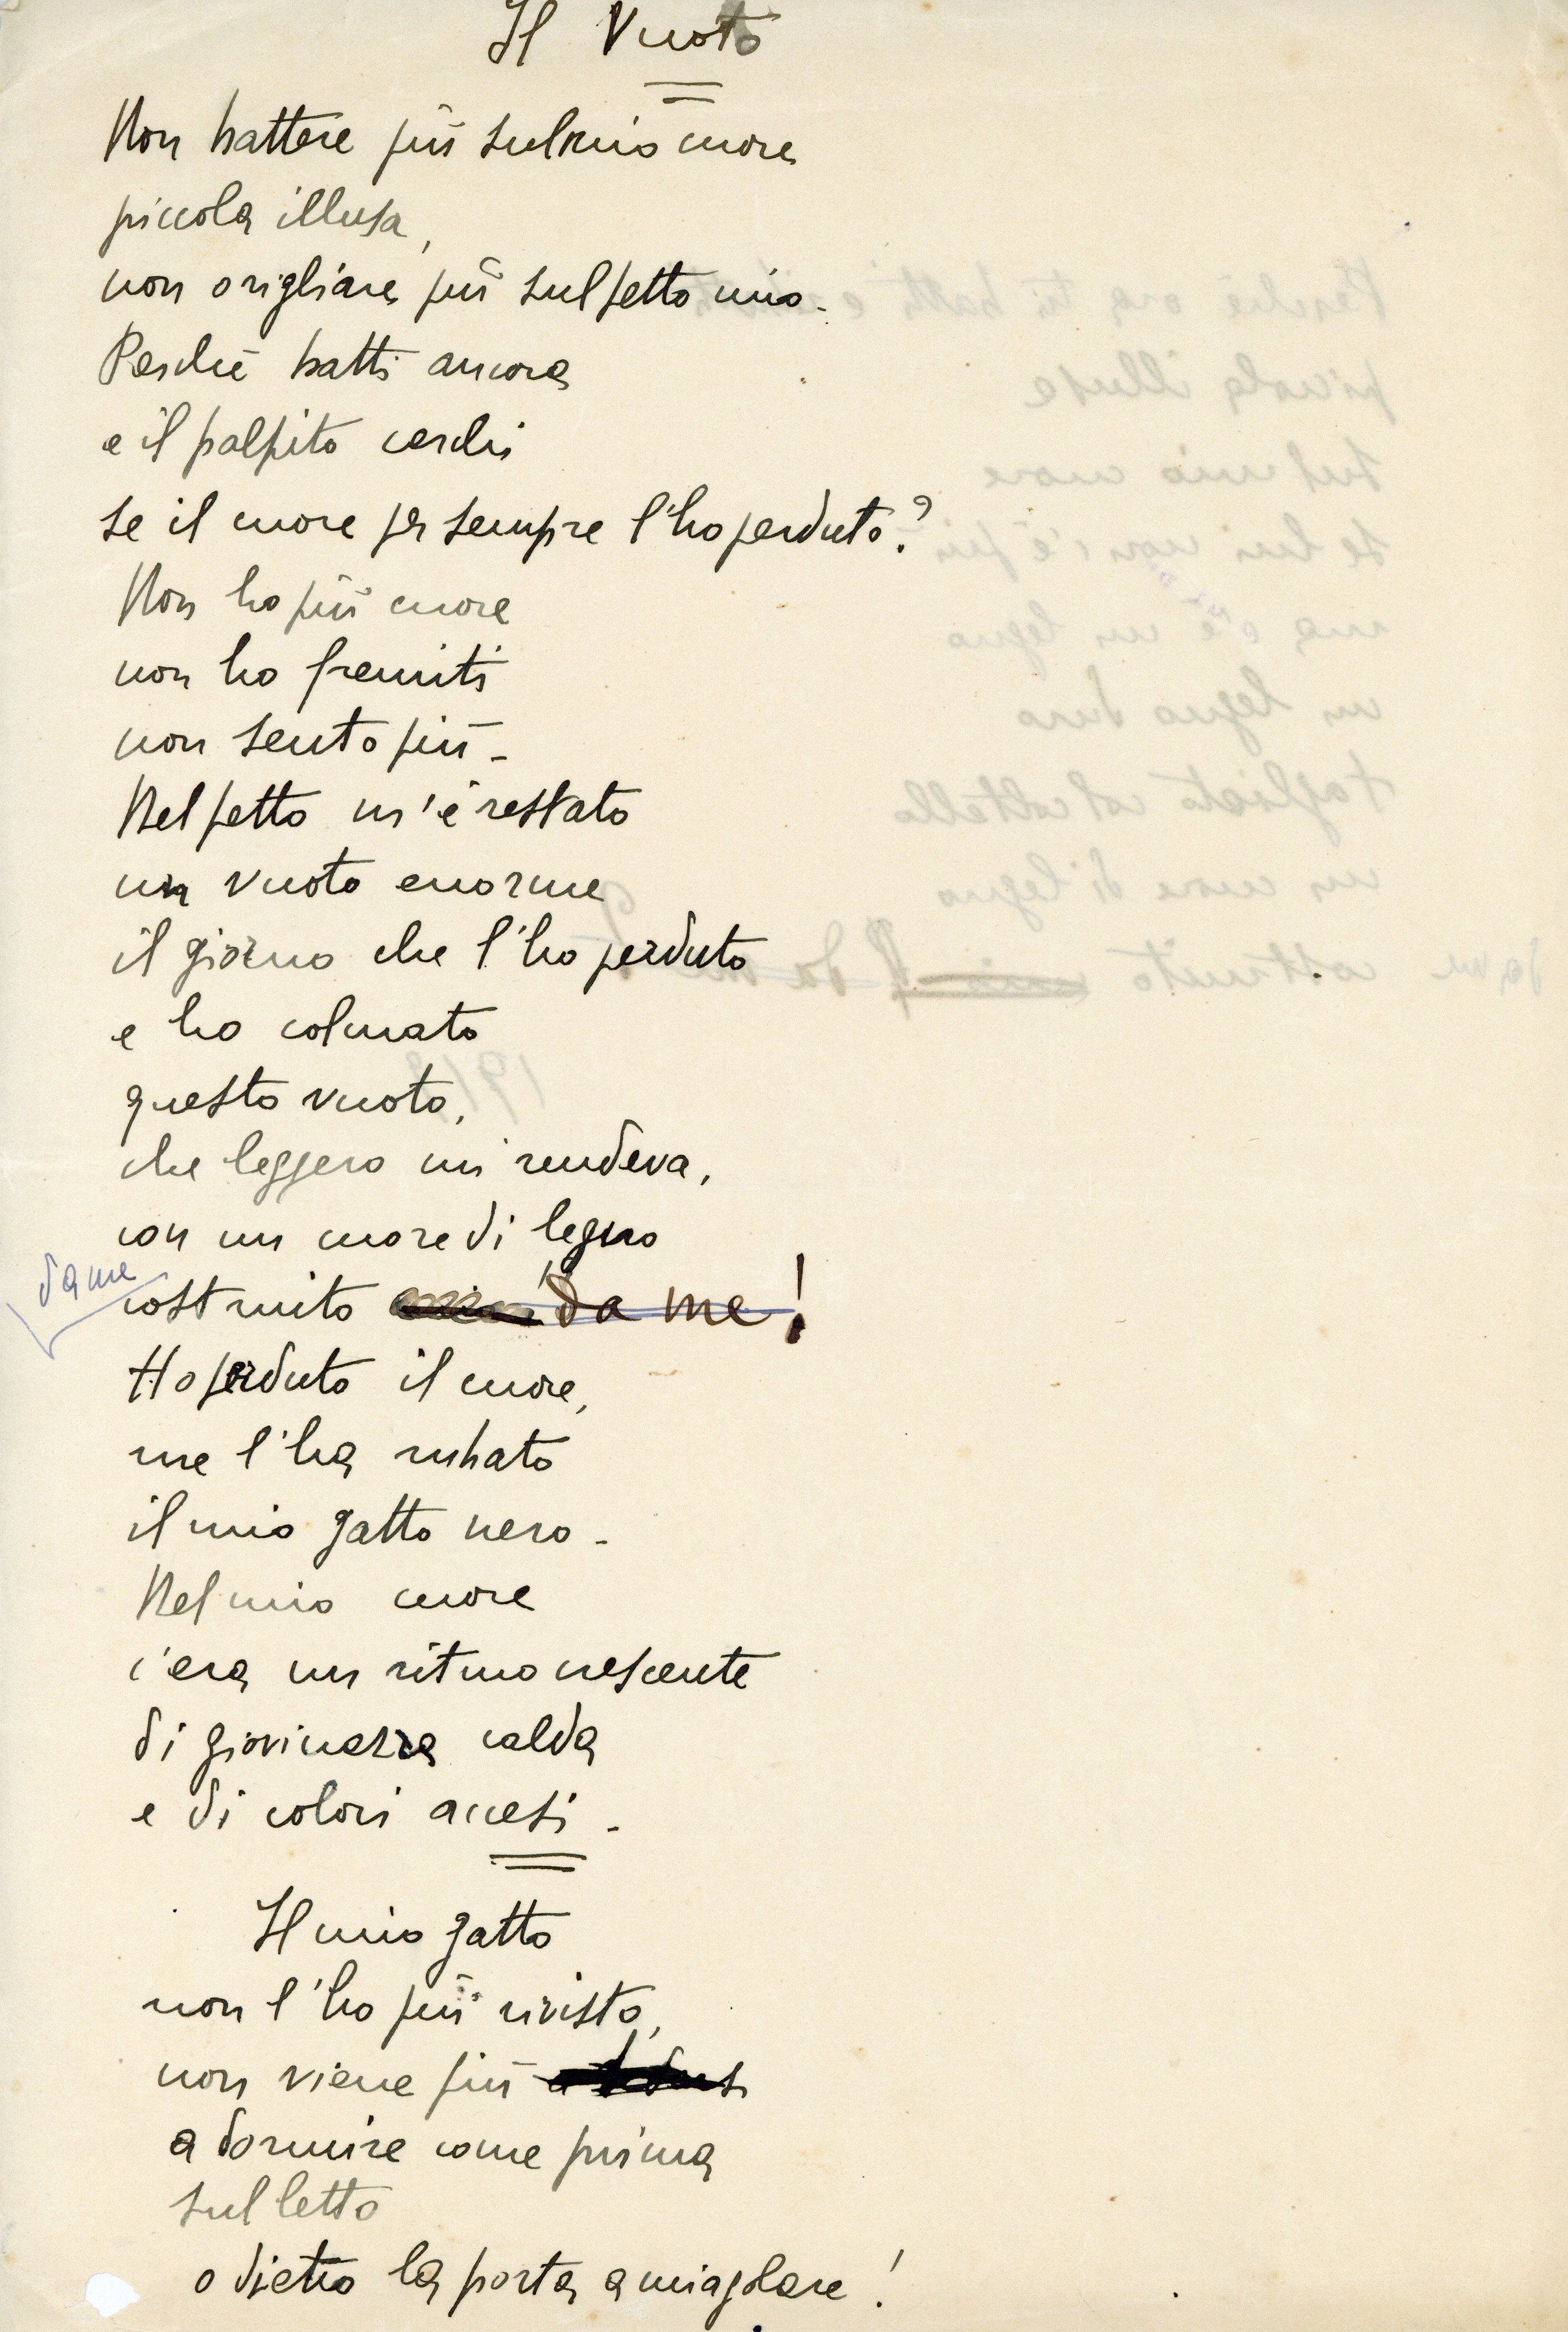 Il Vuoto
Non battere più sul mio cuore
piccola illusa,
non origliare più sul petto mio -
Perchè batti ancora
e il palpito cerchi
se il cuore per sempre l'ho perduto?
Non ho più cuore
non ho fremiti
non sento più -
Nel petto m'è restato
un vuoto enorme
il giorno che l'ho perduto
e ho colmato
questo vuoto,
che leggero mi rendeva,
con un cuore di legno
da me
costruito da me!
Ho perduto il cuore,
me l'ha rubato
il mio gatto nero -
Nel mio cuore
c'era un ritmo crescente
di giovinezza calda
e di colori accesi -
Il mio gatto
non l'ho più rivisto,
non viene più
a dormire come prima
sul letto
o dietro la porta a miagolare!